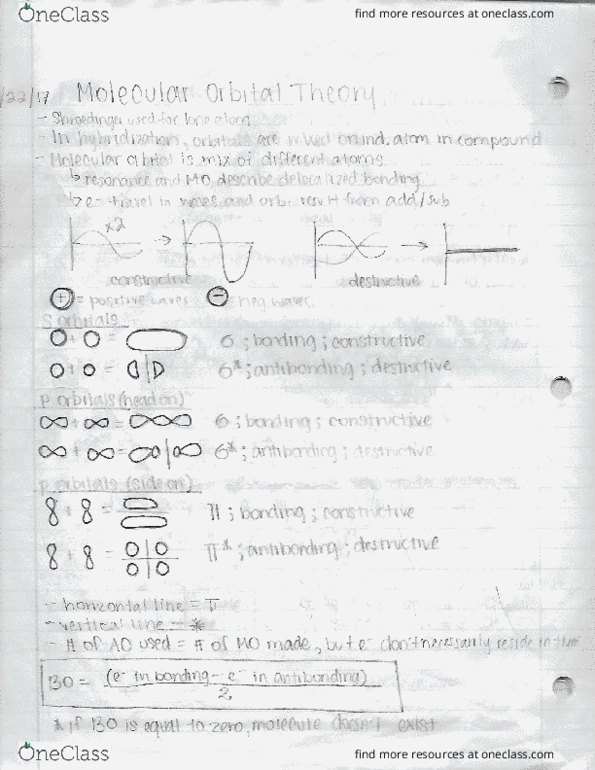 OneClass
find more resources at oneclass.com
/22/17 Molecular Orbital Theory
- Shroedinger used for long along
- In hybridization, orbitals are mixed on ind. atom in compound
- Molecular orbital is mix of different atoms
↳ resonance and MO describe delocalized bonding
↳ e- travel in waves and orb. result from add/sub
x2 → →
constructive destructive
+ = positive waves - = neg waves
S orbitals
+ = 6 ; bonding ; constructive
+ = 6* ; antibonding ; destructive
p orbitals (head on)
∞ + ∞ = 6 ; bonding ; constructive
∞ + ∞ = 6* ; antibonding ; destructive
p orbitals (side on)
8 + 8 = π ; bonding ; constructive
8 + 8 = π* ; antibonding ; destructive
- horizontal line = π
- vertical line - *
- # of AO used = # of MO made, but e- don't necessarily reside in
BO = (e- in bonding - e- in antibonding)
2
* if BO is equal to zero, molecule doesn't exist
OneClass
find more resources at oneclass.com